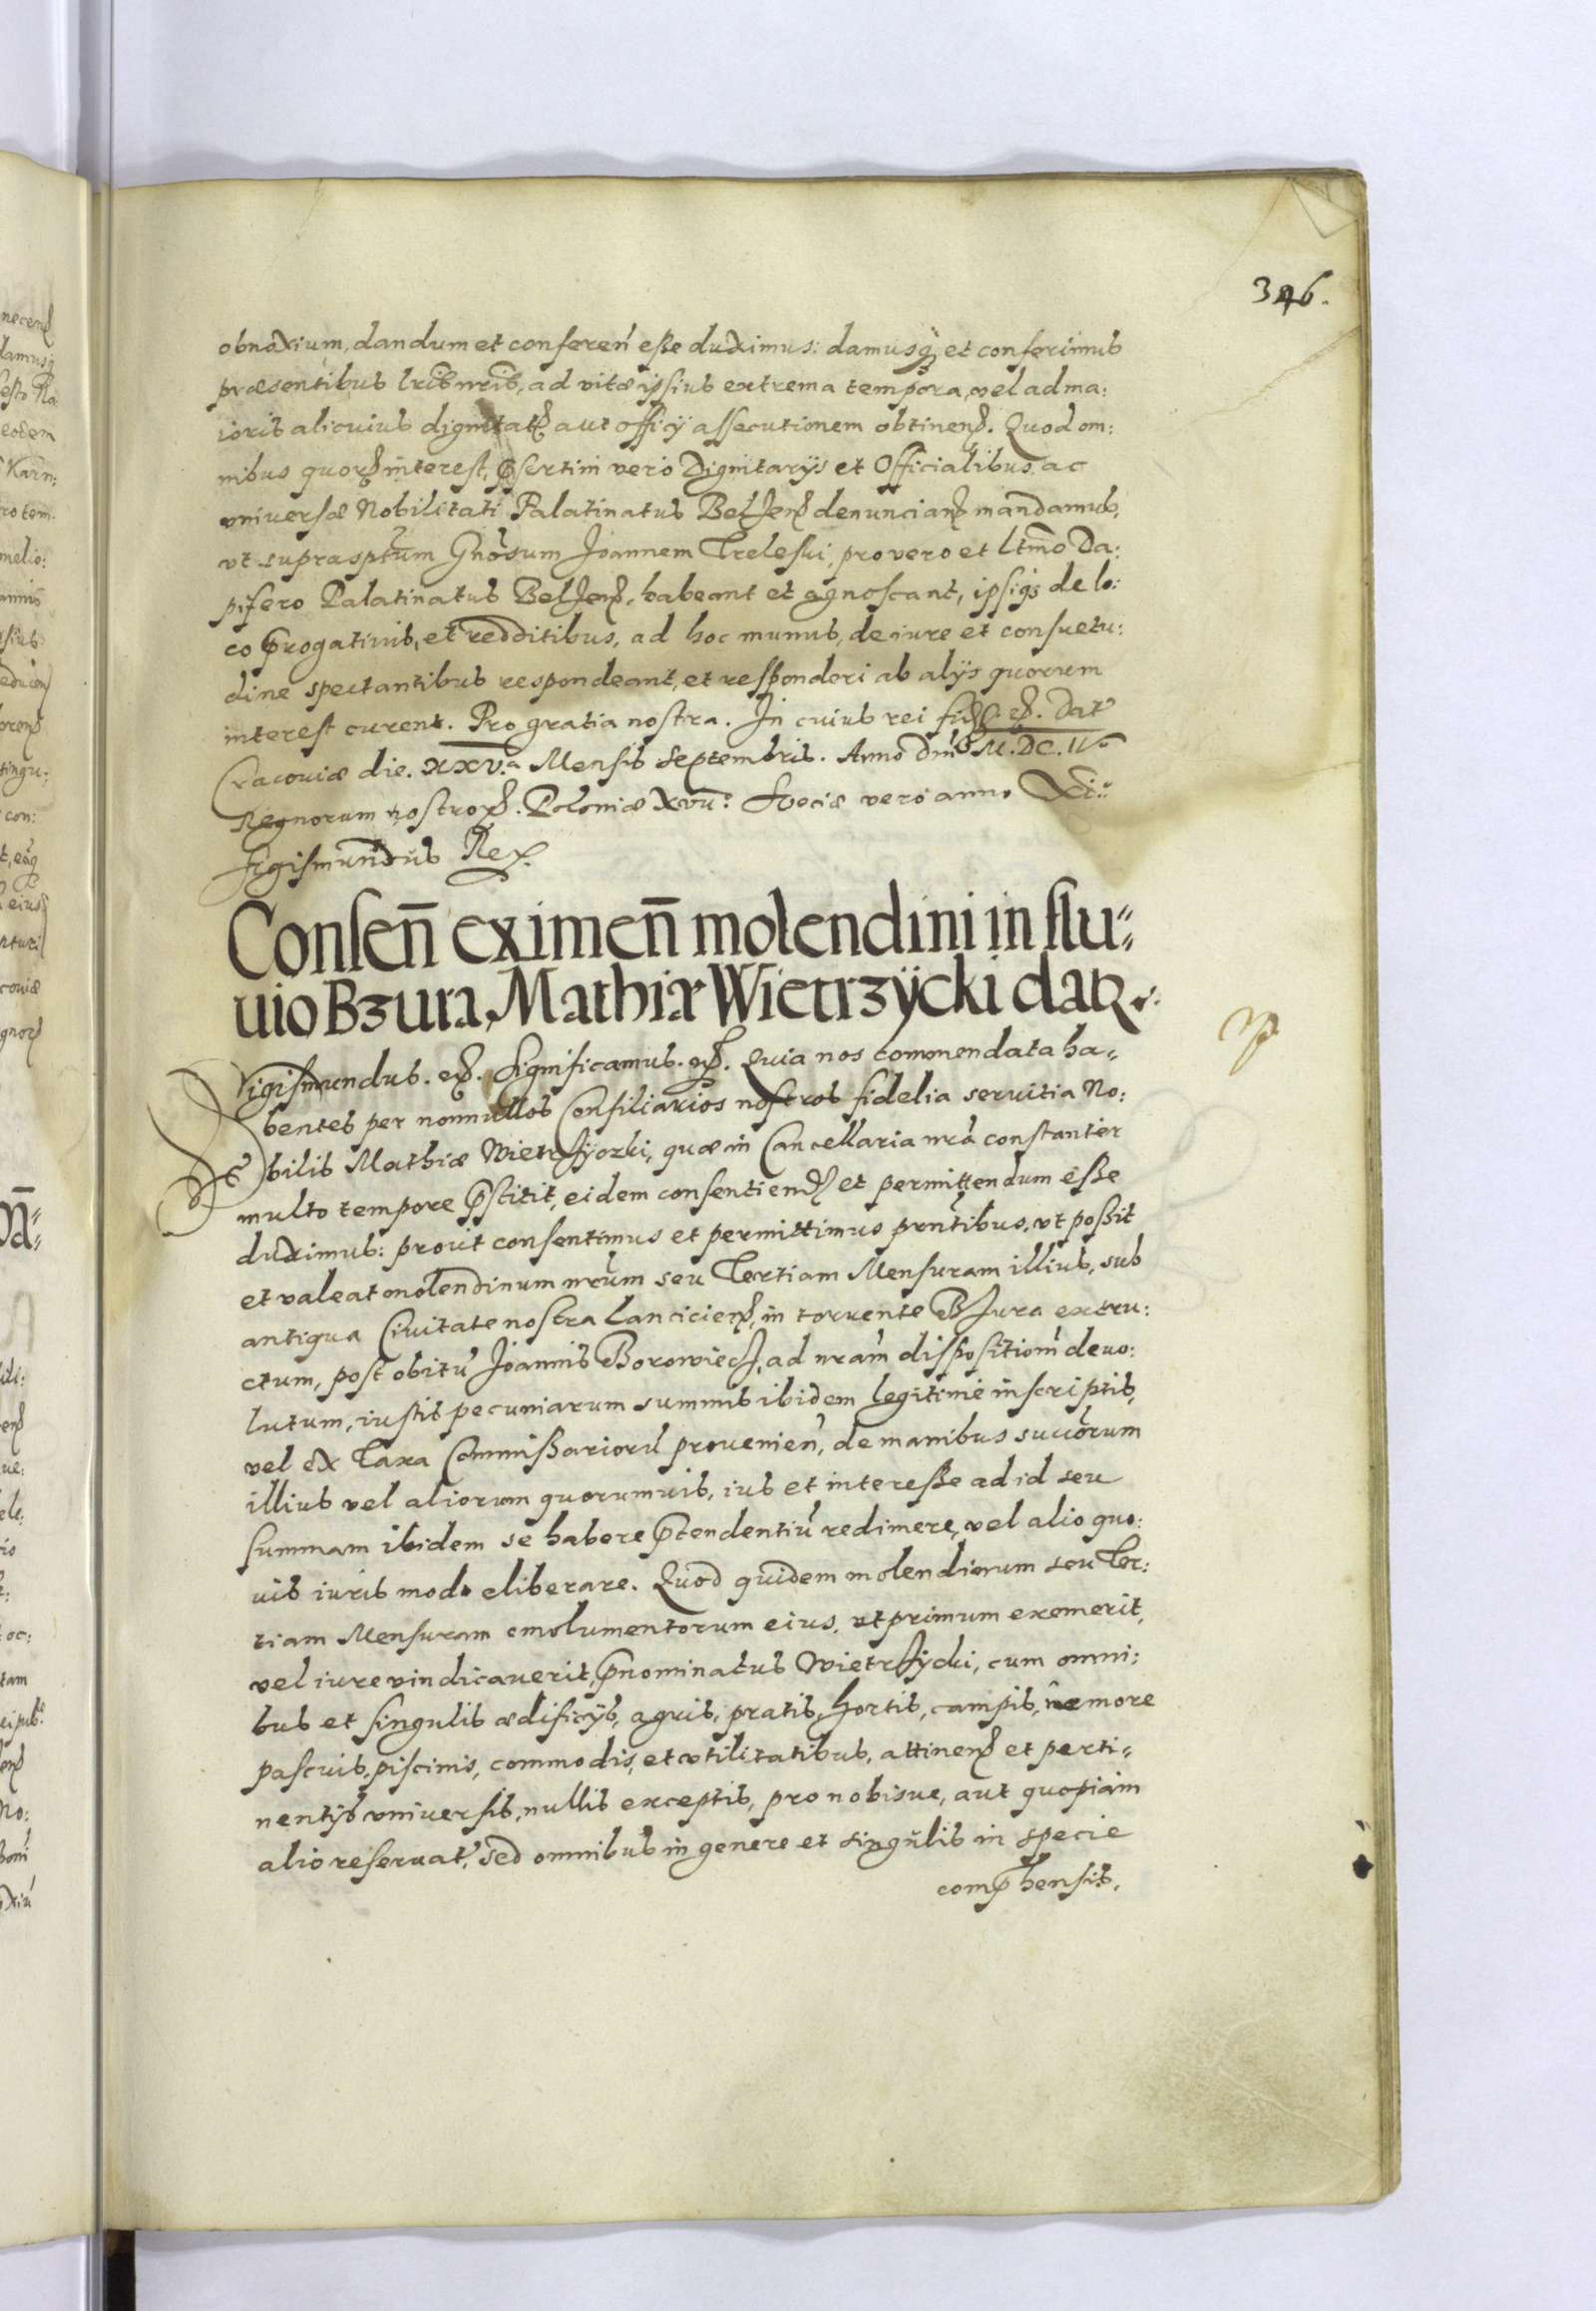 346.
obnoxium, dandum et conferen̄ eße duximus: damusq̃ et conferimus
præsentibus lr̃is nr̃is, ad vitæ ipsius extrema tempora, vel ad ma:
ioris alicuius dignitatꝭ aut officÿ assecutionem obtinenꝭ. Quod om:
nibus quorꝭ interest, p̃sertim vero Dignitarÿs et Officialibus, ac
vniversæ Nobilitati Palatinatus Belzenꝭ denuncianꝭ mandamus,
vt suprasp̃tum Gn̄osum Joannem Treleski, pro vero et lt̃imo Da:
pifero Palatinatus Belzenꝭ, habeant et agnoscant, ipsiq̃ de lo:
co p̃rogativis, et redditibus, ad hoc munus, de iure et consuetu:
dine spectantibus respondeant, et responderi ab alÿs quorum
interest curent. Pro gratia nostra. In cuius rei fidꝭ. eꝭ. Dat̃
Cracoviæ die. XXV.ª Mensis Septembris. Anno Dn̄i M.DC.IV°
Regnorum nostroꝝ. Poloniæ XVII.° Sveciæ vero anno XI.°
Sigismundus Rex.
Consen̄ eximen̄ molendini in flu⸗
uio Bzura, Mathiæ Wietrzÿcki datꝝ.
Sigismundus. eꝭ. Significamus. eꝭ. Quia nos commendata ha⸗
bentes per nonnullos Consiliarios nostros fidelia servitia No:
bilis Mathiæ Wietrzÿczki, quæ in Cancellaria nr̃a constanter
multo tempore p̃stitit, eidem consentiendꝭ et permittendum eße
duximus: prout consentimus et permittimus pn̄tibus, vt poßit
et valeat molendinum nr̃um seu Tertiam Mensuram illius, sub
antiqua Civitate nostra Lancicienꝭ, in torrente Bzura extru:
ctum, post obitũ Joannis Borowieczꝭ, ad nr̃am dispositionẽ devo:
lutum, iustis pecuniarum summis ibidem legitime inscriptis,
vel ex Taxa Commißariorũ provenien̄, de manibus succorum
illius vel aliorum quorumvis, ius et intereße ad id seu
summam ibidem se habere p̃tendentiũ redimere, vel alio quo:
vis iuris modo eliberare. Quod quidem molendinum seu Ter:
tiam Mensuram emolumentorum eius, vt primum exemerit,
vel iure vindicaverit, p̃nominatus Wietrzÿcki, cum omni:
bus et singulis ædificÿs, agris, pratis, hortis, campis, nemore
pascuis, piscinis, commodis, et vtilitatibus, attinenꝭ et perti⸗
nentÿs vniversis, nullis exceptis, pro nobisve, aut quopiam
alio reservat̃, sed omnibus in genere et singulis in specie
comp̃hensis,